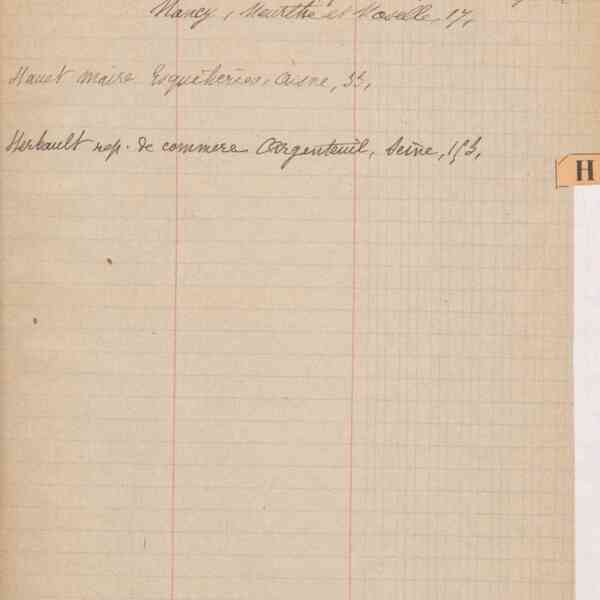 Nancy, Meurthe et Moselle 17,
Hauet maire Esquéheries, Aisne, 33,
Herbault rep. de commerce Argenteuil, Seine, 153,
H